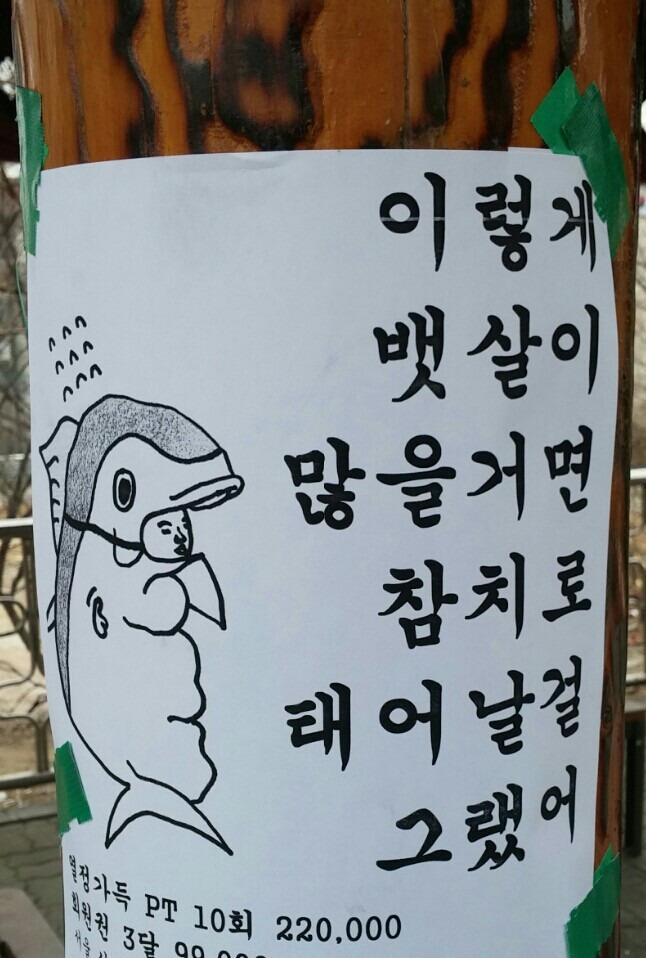 이렇게
뱃살이
많을거면
참치로
태어날걸
그랬어
열정가득 PT 10회 220,000
회원권 3달 99,000
서울